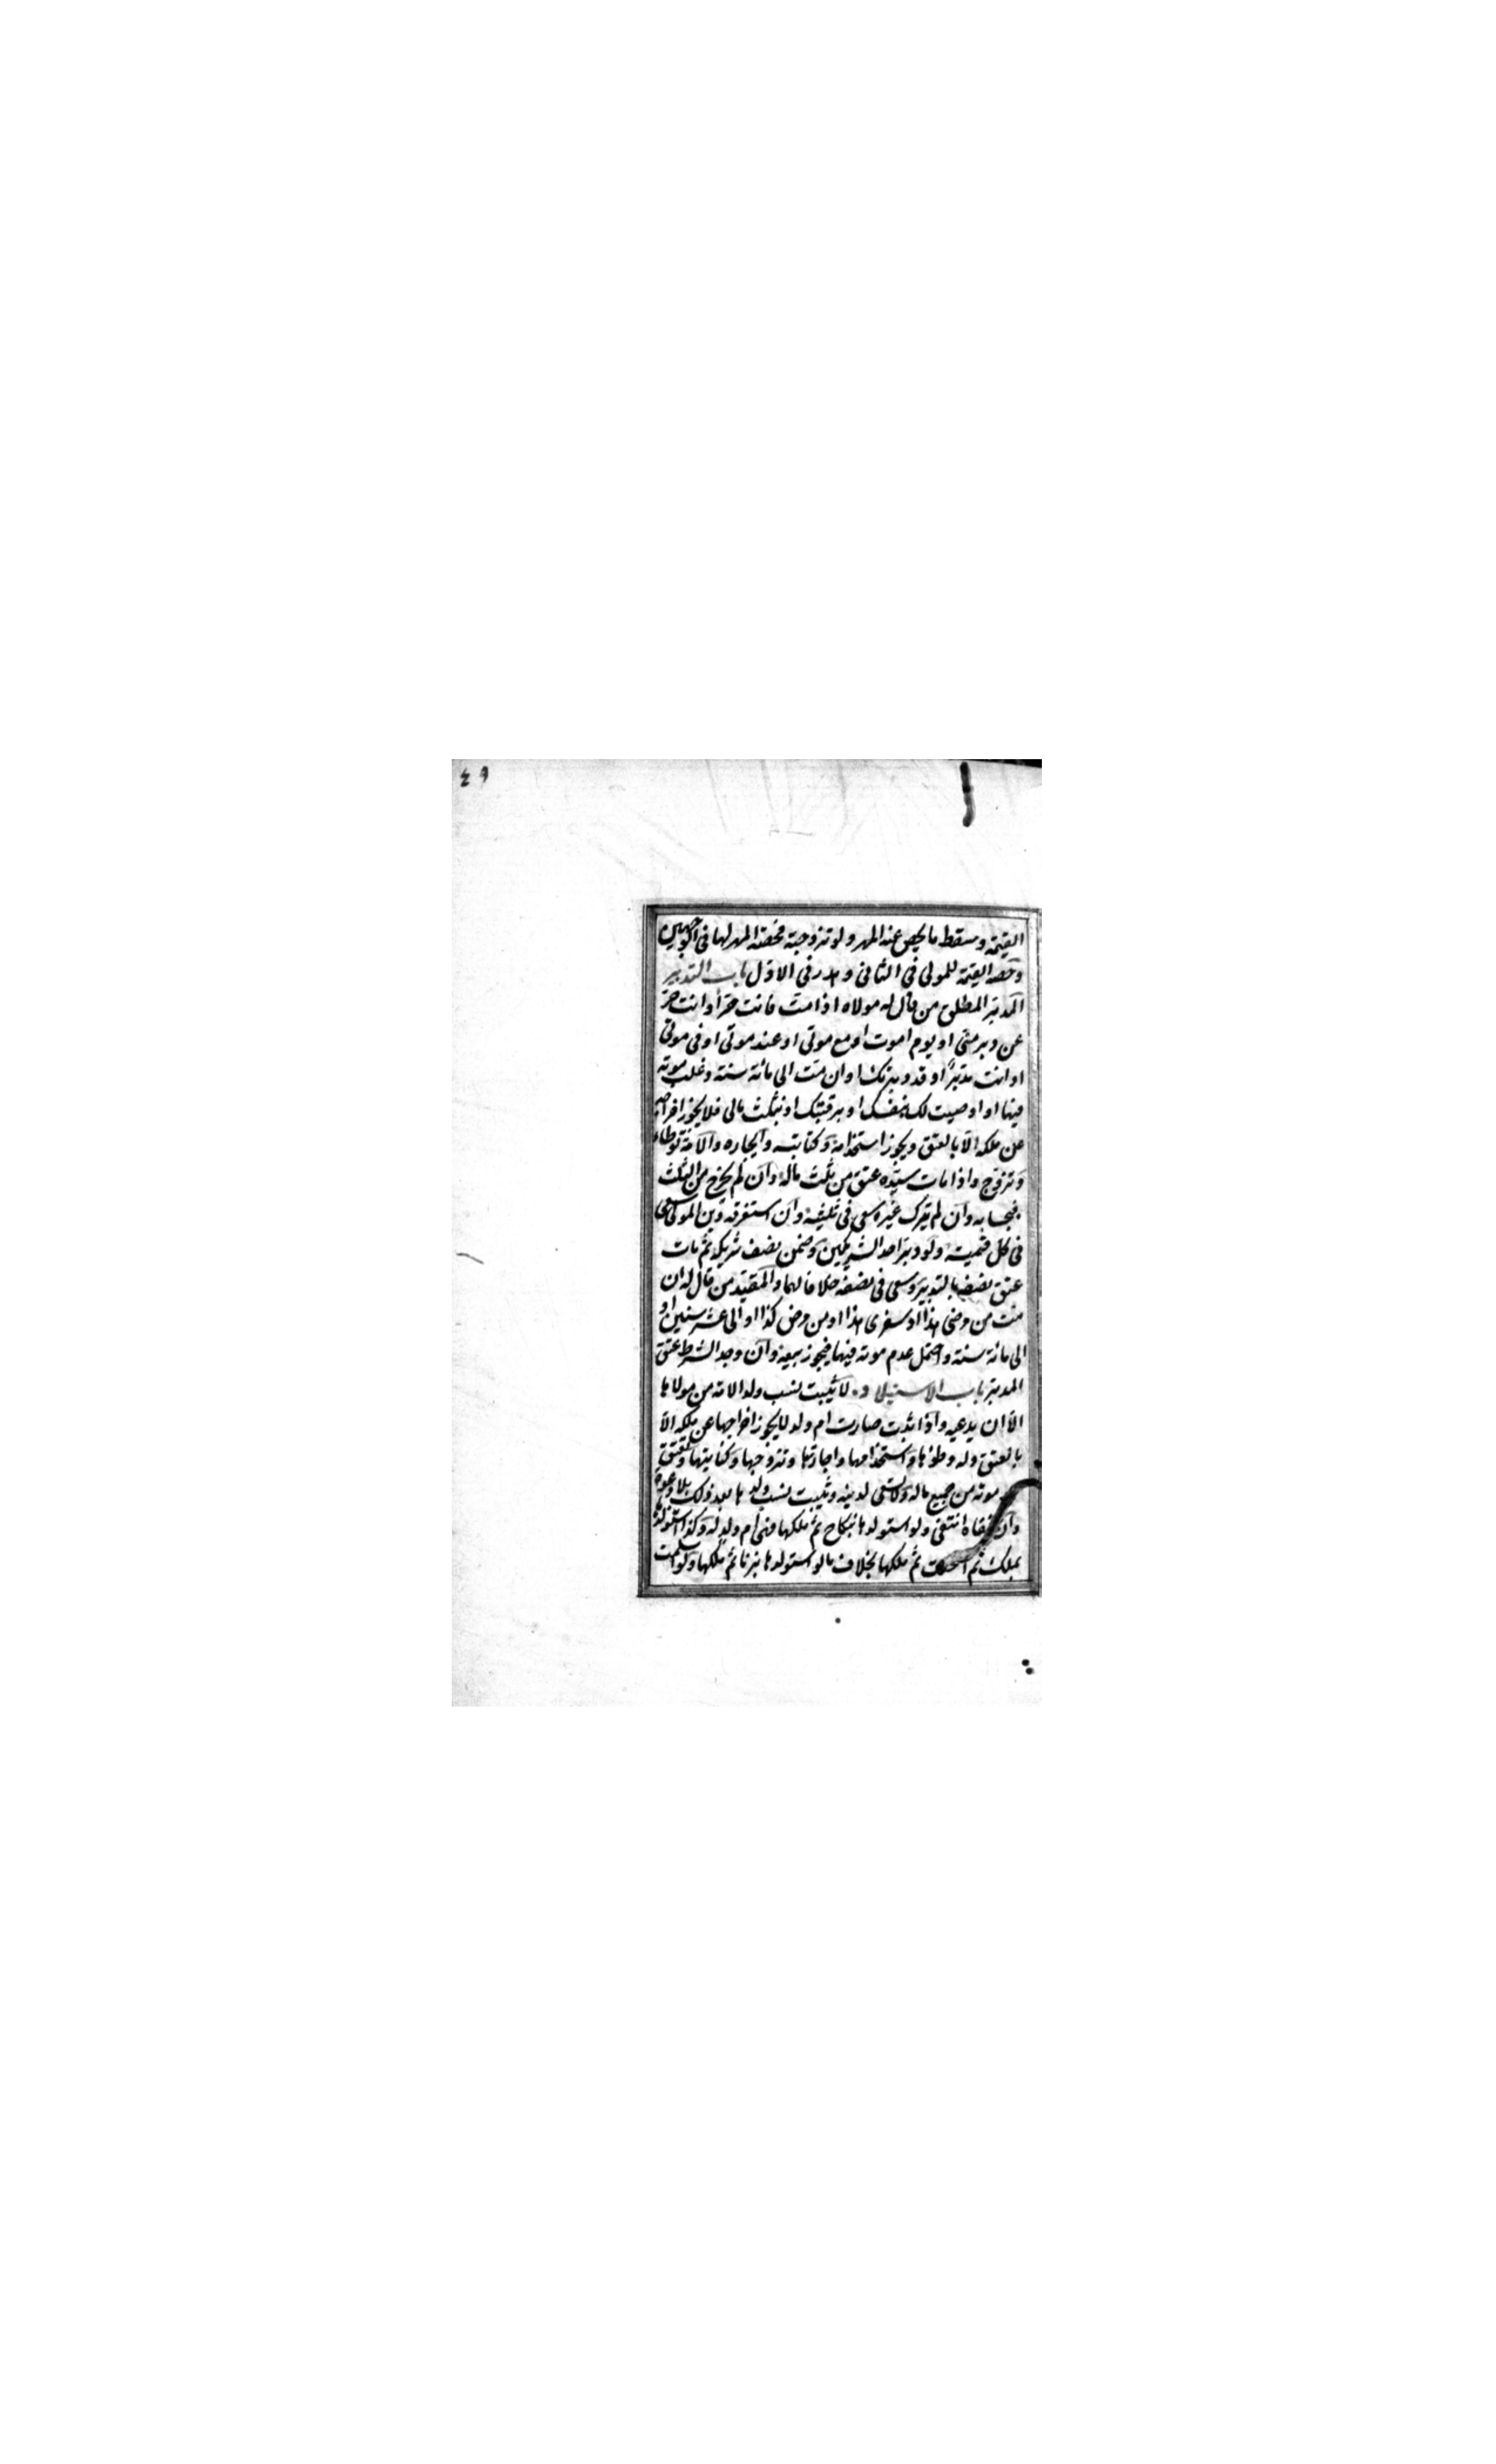 ٤٩
القيمة ويسقط ما يخص عنه المهر ولو تزوجته فحصة المهر لها فى الوجهين
وحصة القيمة للمولى فى الثانى وهدر فى الاول باب التدبير
المدبر المطلق من قال له مولاه اذا مت فانت حر او انت حر
عن دبر منى او يوم اموت او مع موتى او عند موتى او فى موتى
او انت مدبر او قد دبرتك او ان مت الى مائة سنة وغلب موته
فيها او اوصيت لك بنفسك او برقبتك او بثلث مالى فلا يجوز اخراجه
عن ملكه الا بالعتق ويجوز استخدامه وكتابته وايجاره والامة توطاء
وتزوج واذا مات سيده عتق من ثلث ماله وان لم يخرج من الثلث
فبحسابه وان لم يترك غيره سعى فى ثلثيه وان استغرقه دين المولى سعى
فى كل قيمته ولو دبر احد الشريكين وضمن نصف شريكه ثم مات
عتق نصفه بالتدبير وسعى فى نصفه خلافا لهما والمقيد من قال له ان
مت من مرضى هذا او سفرى هذا او من مرض كذا او الى عشر سنين او
الى مائة سنة واحتمل عدم موته فيها فيجوز بيعه وان وجد الشرط عتق
المدبر باب الاستيلاد لا يثبت نسب ولد الامة من مولاها
الا ان يدعيه واذا ثبت صارت ام ولد لا يجوز اخراجها عن ملكه الا
بالعتق وله وطؤها واستخدامها واجارتها وتزوجها وكتابتها وتعتق
موته من جميع ماله ولا تسعى لدينه ويثبت نسب ولدها بعد ذلك بلا دعوة
وان نفاه انتفى ولو استولدها بنكاح ثم ملكها فهى ام ولد له وكذا لو استولدها
بملك ثم استحقت ثم ملكها بخلاف ما لو استولدها بزنا ثم ملكها ولو اسلمت